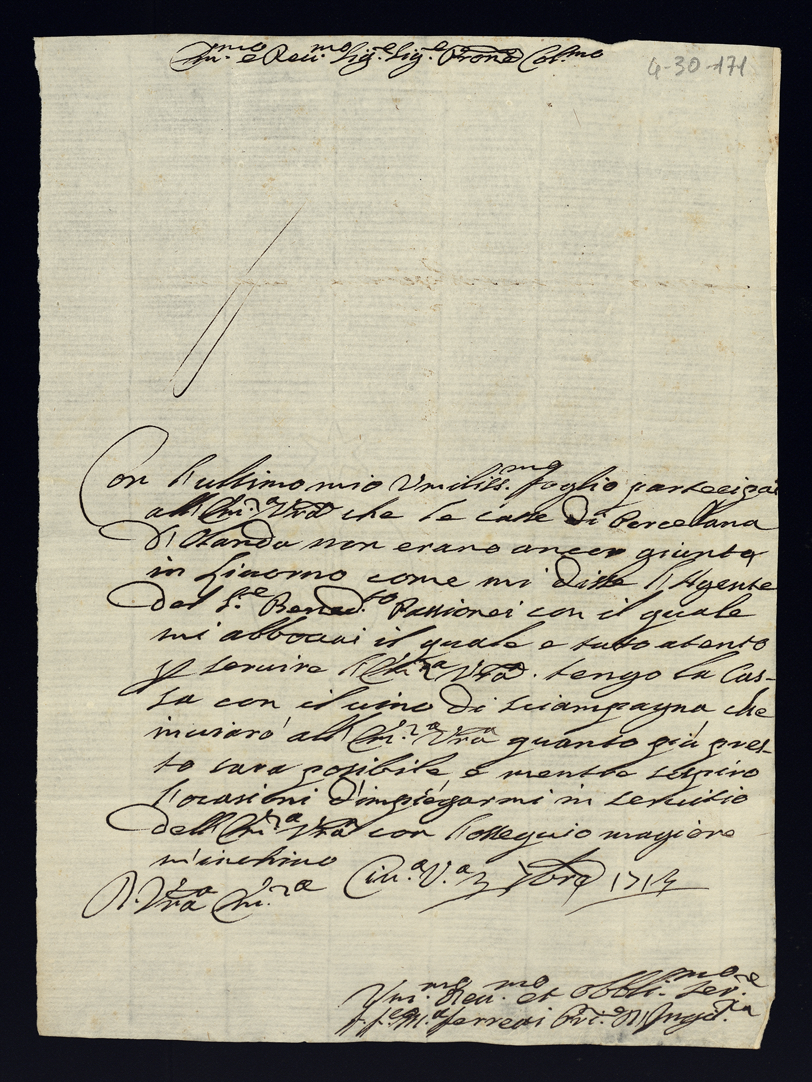 Em.mo e Reu.mo Sig.e Sig.e Prone Col.mo
4-30-171
Con l'ultimo mio Vmiliss.mo foglio partecipai
all'Em.za Vra che le casse di Percelana
d'Olanda non erano ancor giunte
in Liuorno come mi disse l'Agente
del S.re Bened.to Passionei con il quale
mi abboccai il quale e tutto atento
p seruire l'Em.za Vra. tengo la Cas-
sa con il uino di sciampagna che
inuiarò all'Em.za Vra quanto più pres-
to sara posibile, e mentre sospiro
l'ocasioni d'impiegarmi in seruitio
dell'Em.za Vra con l'ossequio magiore
m'inchino
D. Vra Em.za Ciu.a V.a 2 7bre 1714
Vm.mo Deu.mo et Obbli.mo Ser.re
Ferretti